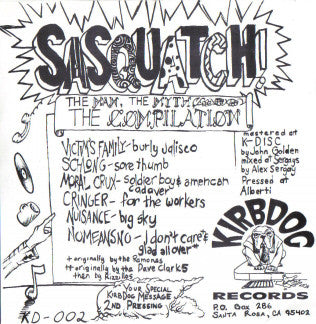 SASQUATCH!
THE MAN, THE MYTH
THE COMPILATION!
VICTIM'S FAMILY - burly jalisco
SCHLONG - sore thumb
MORAL CRUX - soldier boy & american
cadaver
CRINGER - for the workers
NUISANCE - big sky
NOMEANSNO - I don't care &
glad all over
+ originally by the Ramones
++ originally by the Dave Clark 5
then by Rizzilles
mastered at
K-DISC
by John Golden
mixed at Sergays
by Alex Sergay
Pressed at
Alberti
KIRBDOG
RECORDS
P.O. Box 286
SANTA ROSA, CA 95402
YOUR SPECIAL
KIRBDOG MESSAGE
2ND PRESSING
KD-002